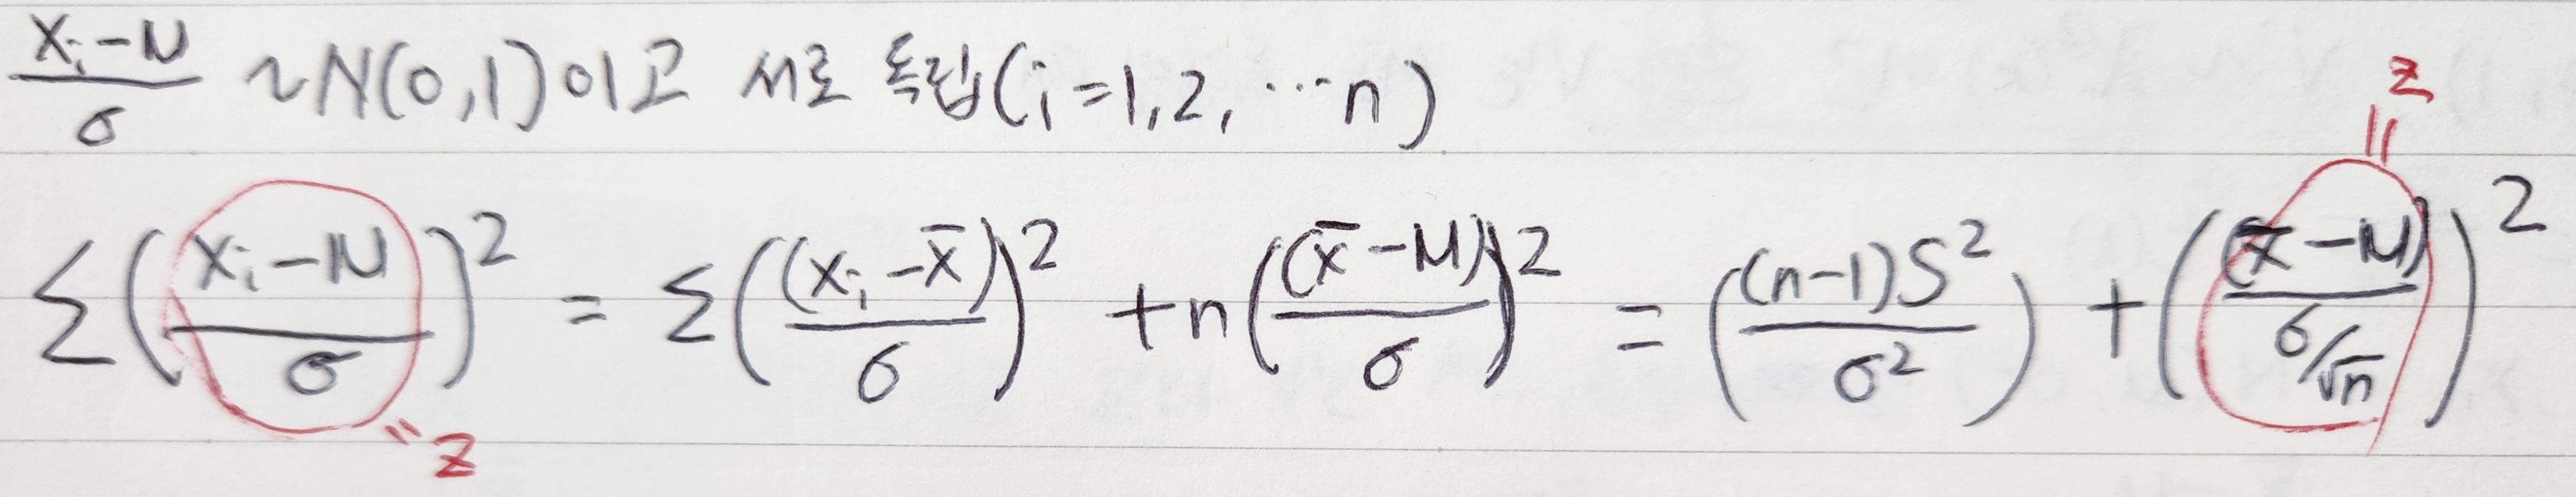 (Xᵢ-μ)/σ ~N(0,1)이고 서로 독립(i=1,2,…n)
Z
=
Σ((Xᵢ-μ)/σ)² = Σ((Xᵢ-X̄)/σ)² +n((X̄-μ)/σ)² = ((n-1)S²/σ²) + ((X̄-μ)/(σ/√n))²
=Z